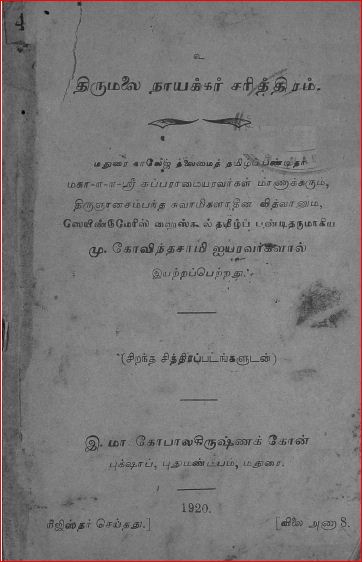 4
உ
திருமலை நாயக்கர் சரித்திரம்.
மதுரை காலேஜ் தலைமைத் தமிழ்ப்பண்டிதர்
மகா-ள-ள-ஸ்ரீ சுப்பராமையரவர்கள் மாணாக்கரும்,
திருஞானசம்பந்த சுவாமிகளாதின வித்வானும்,
ஸெயிண்ட்மேரிஸ் ஹைஸ்கூல் தமிழ்ப் பண்டிதருமாகிய
மு. கோவிந்தசாமி ஐயரவர்களால்
இயற்றப்பெற்றது.
(சிறந்த சித்திரப்படங்களுடன்)
இ. மா. கோபாலகிருஷ்ணக் கோன்
புக்ஷாப், புதுமண்டபம், மதுரை.
1920.
ரிஜிஸ்தர் செய்தது.] [விலை அணா 8.